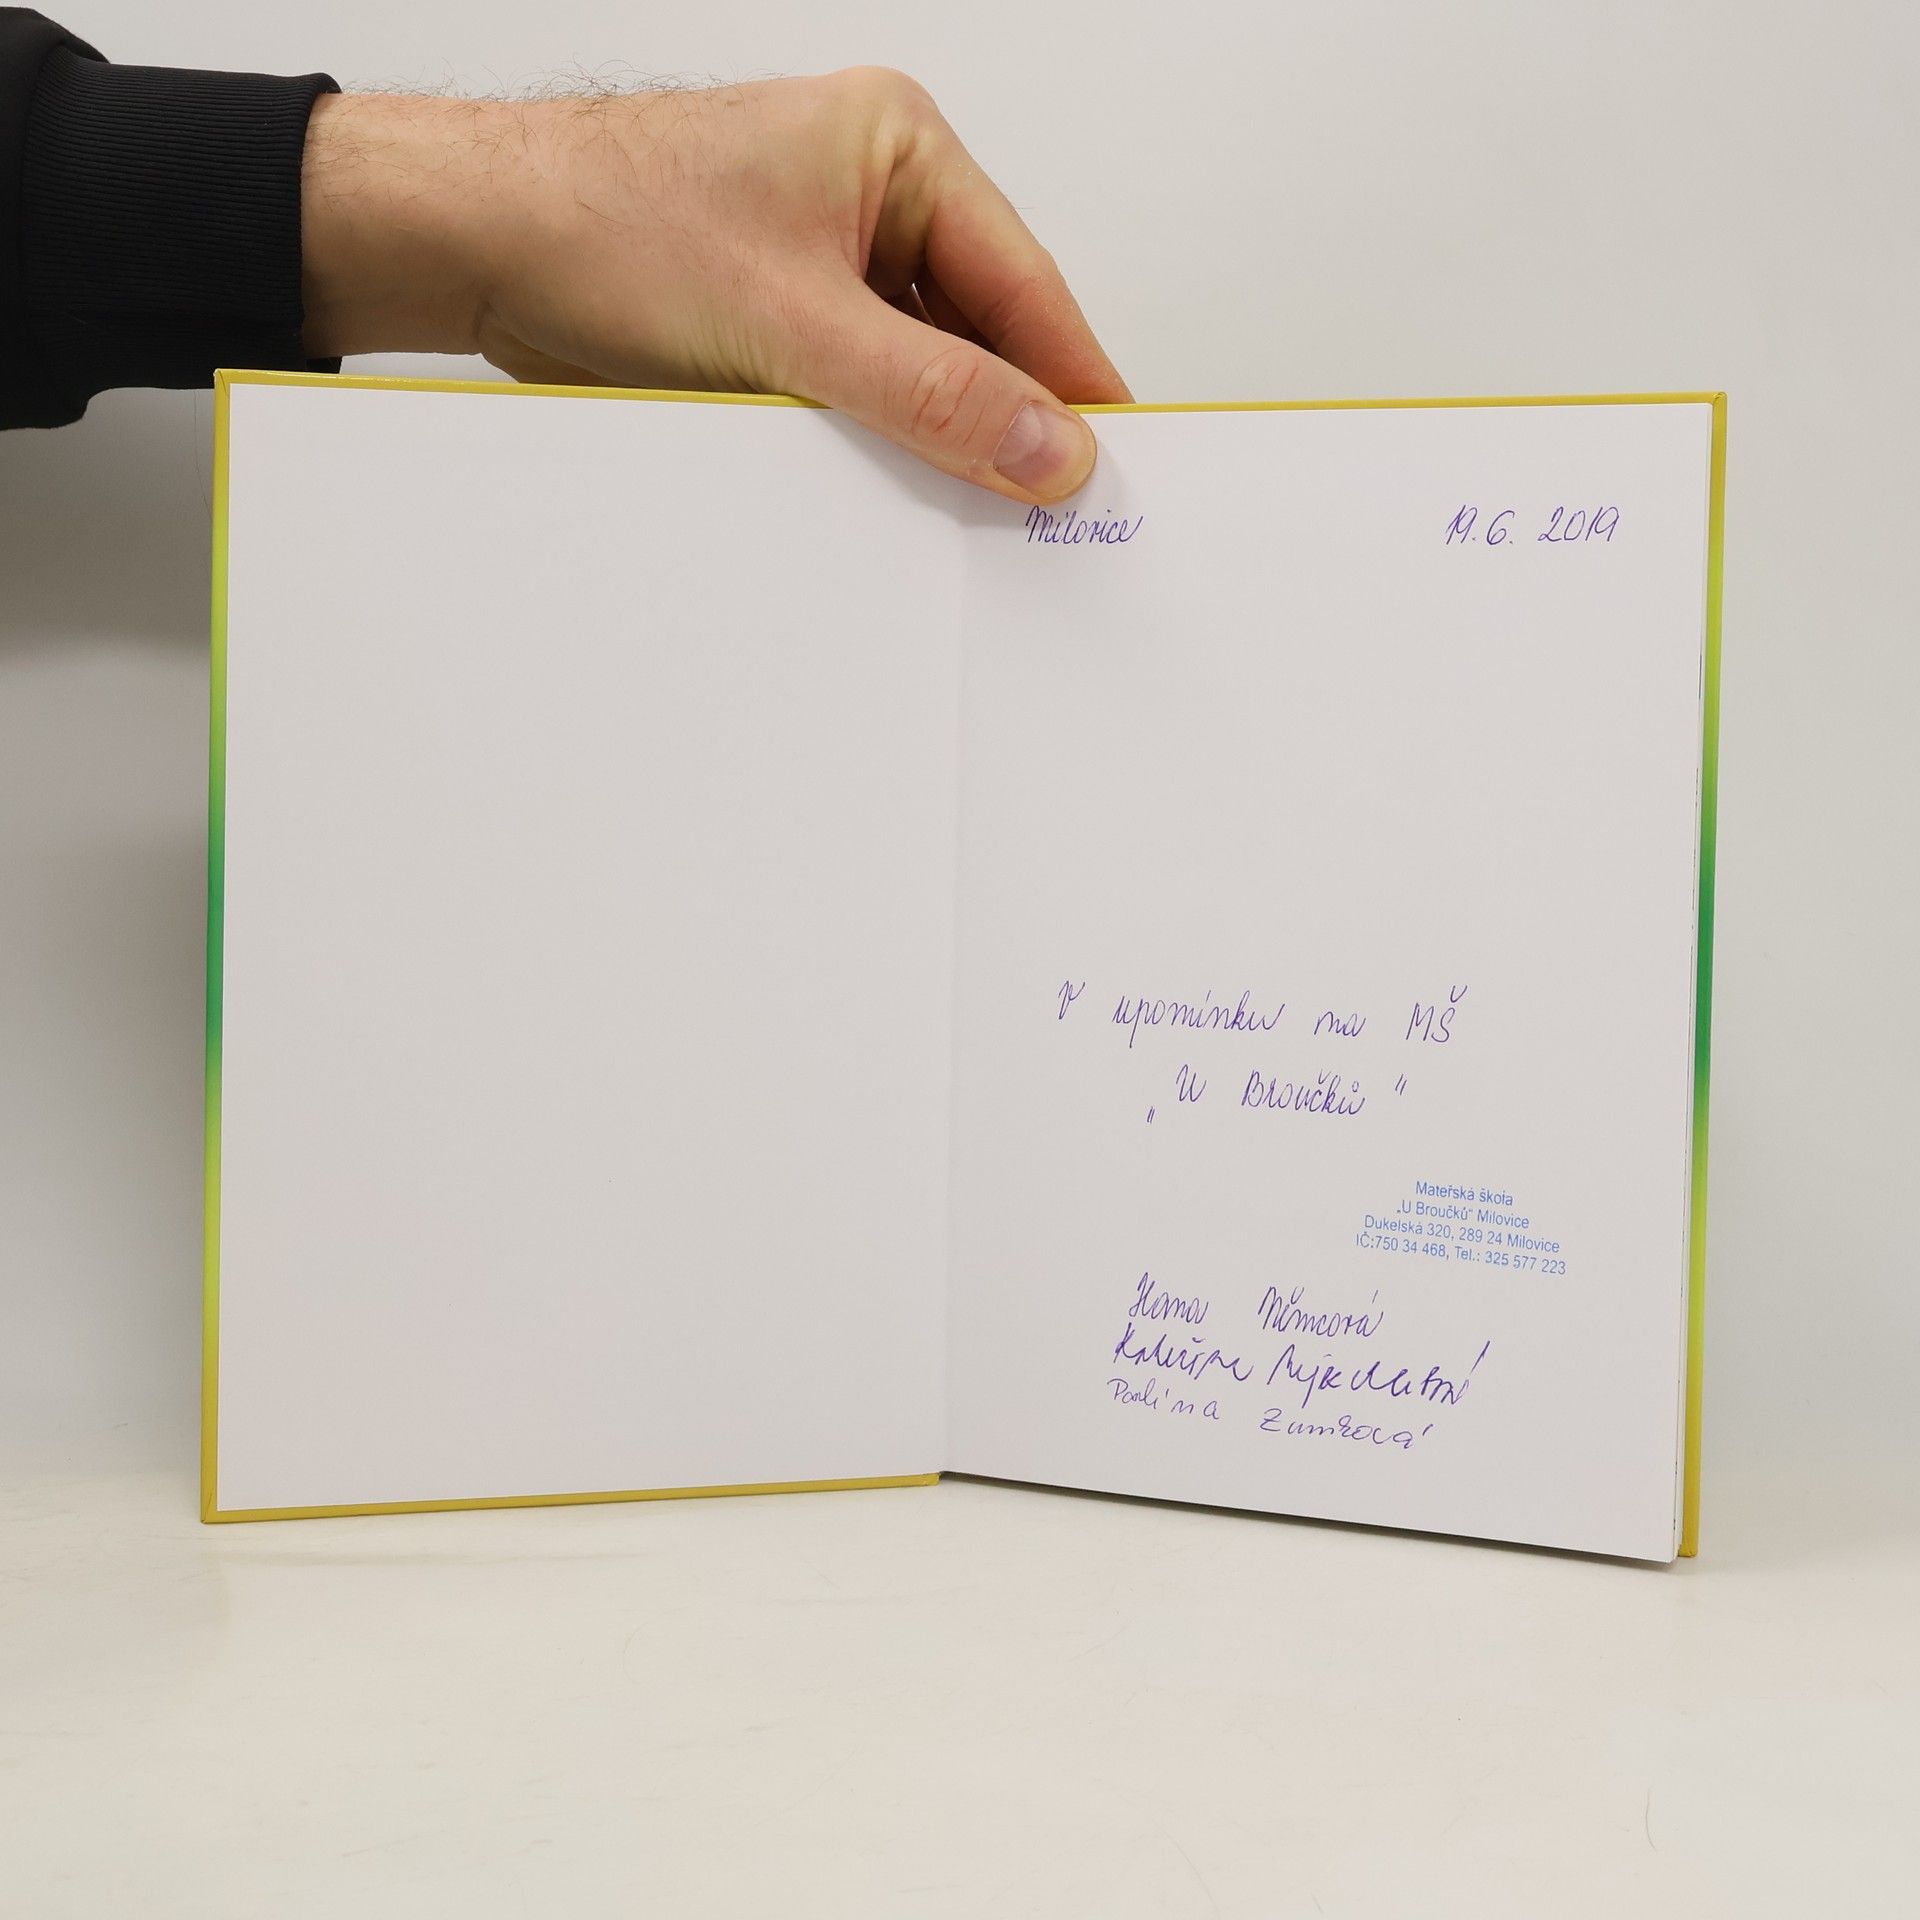 Milovice 19. 6. 2019
V upomínku na MŠ
„U Broučků"
Mateřská škola
„U Broučků" Milovice
Dukelská 320, 289 24 Milovice
IČ:750 34 468, Tel.: 325 577 223
Hana Němcová
Kateřina
Pavlína